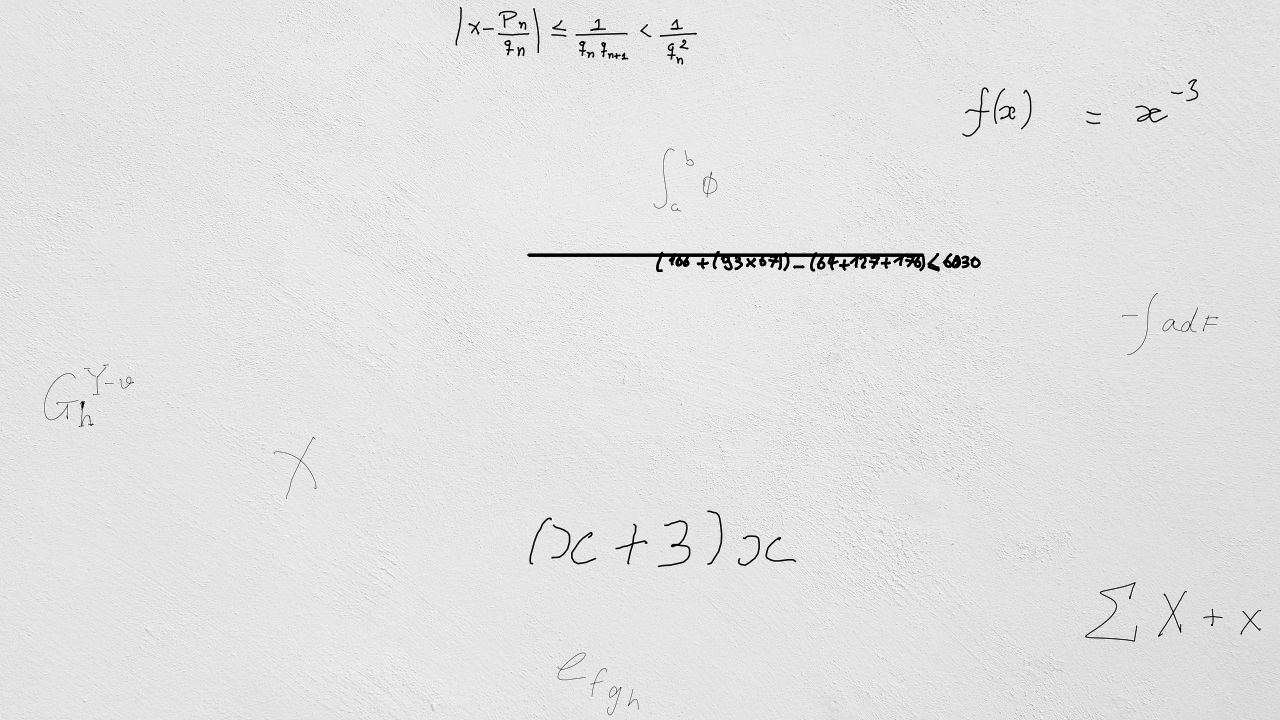 |x - Pₙ/qₙ| ≤ 1/(qₙ qₙ₊₁) < 1/qₙ²
f(x) = x⁻³
∫ₐᵇ ϕ
(166 + (93×67)) - (64+127+176) < 6030
-∫adF
Gₕ^(Y-v)
X
(x+3)x
∑ X + x
e_fgh